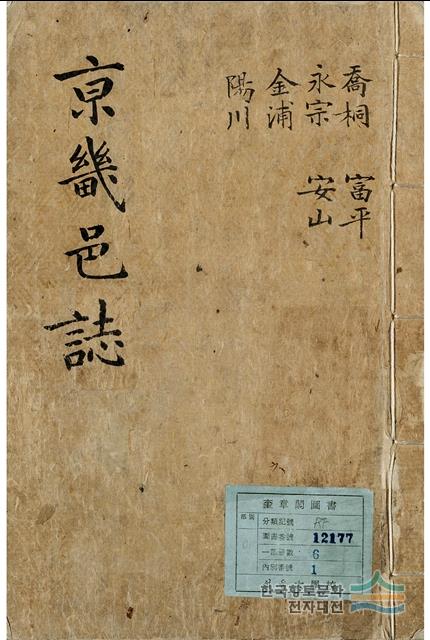 京畿邑誌
喬桐 富平
永宗 安山
金浦
陽川
奎章閣圖書
部類
分類記號
圖書番號 12177
一部冊數 6
內別番號 1
한국향토문화
전자대전